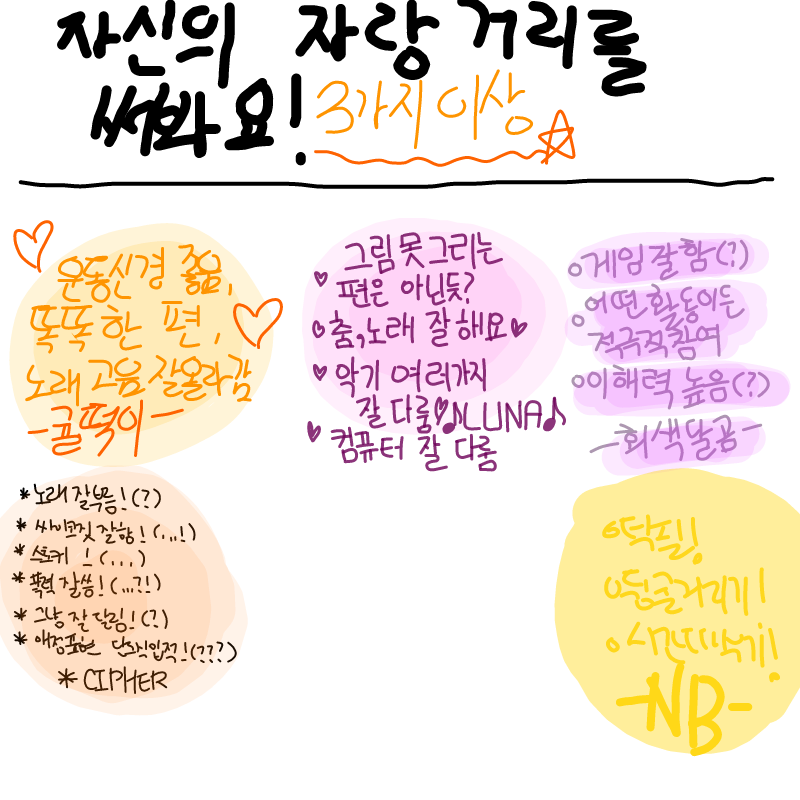 자신의 자랑 거리를
써봐요! 3가지 이상
운동신경 좋음,
똑똑한 편,
노래 고음 잘올라감
-꿀떡이-
그림 못그리는
편은 아닌듯?
춤,노래 잘해요
악기 여러가지
잘 다룸 ♪LUNA♪
컴퓨터 잘 다룸
게임잘함(?)
어떤활동이든
적극적참여
이해력 높음(?)
-회색달곰-
*노래 잘부름!(?)
*싸이코짓 잘함!(...!)
*스토커 !(...)
*폭력 잘씀!(...?!)
*그냥 잘 달림!(?)
*애정표현 단도직입적!(???)
*CIPHER
떡필!
뒹굴거리기!
시간때우기!
-NB-